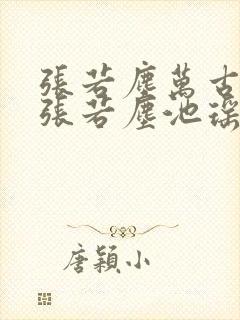 張若塵萬古
張若塵池瑤
唐穎小